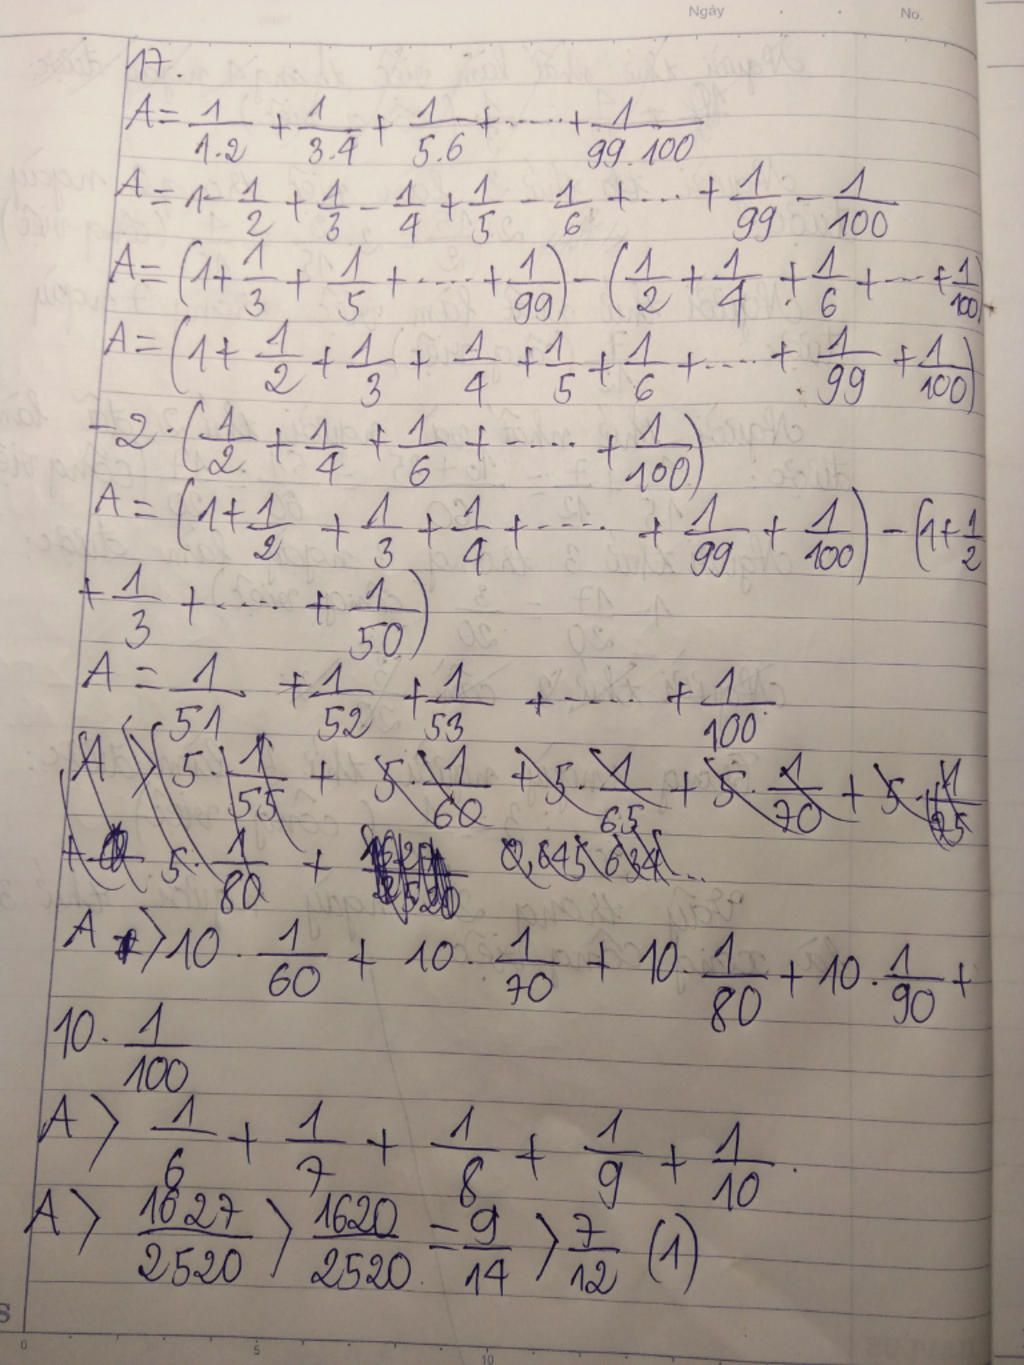 Ngày
No.
17.
A = 1/1.2 + 1/3.4 + 1/5.6 + ..... + 1/99.100
A = 1 - 1/2 + 1/3 - 1/4 + 1/5 - 1/6 + ... + 1/99 - 1/100
A = (1 + 1/3 + 1/5 + ..... + 1/99) - (1/2 + 1/4 + 1/6 + ... + 1/100)
A = (1 + 1/2 + 1/3 + 1/4 + 1/5 + 1/6 + ..... + 1/99 + 1/100)
- 2 . (1/2 + 1/4 + 1/6 + ..... + 1/100)
A = (1 + 1/2 + 1/3 + 1/4 + ..... + 1/99 + 1/100) - (1 + 1/2
+ 1/3 + ..... + 1/50)
A = 1/51 + 1/52 + 1/53 + ..... + 1/100
A > 5 . 1/55 + 5 . 1/60 + 5 . 1/65 + 5 . 1/70 + 5 .
+ 5 . 1/80 +
A > 10 . 1/60 + 10 . 1/70 + 10 . 1/80 + 10 . 1/90 +
10 . 1/100
A > 1/6 + 1/7 + 1/8 + 1/9 + 1/10 .
A > 1627/2520 > 1620/2520 = 9/14 > 7/12 (1)
0 5 10